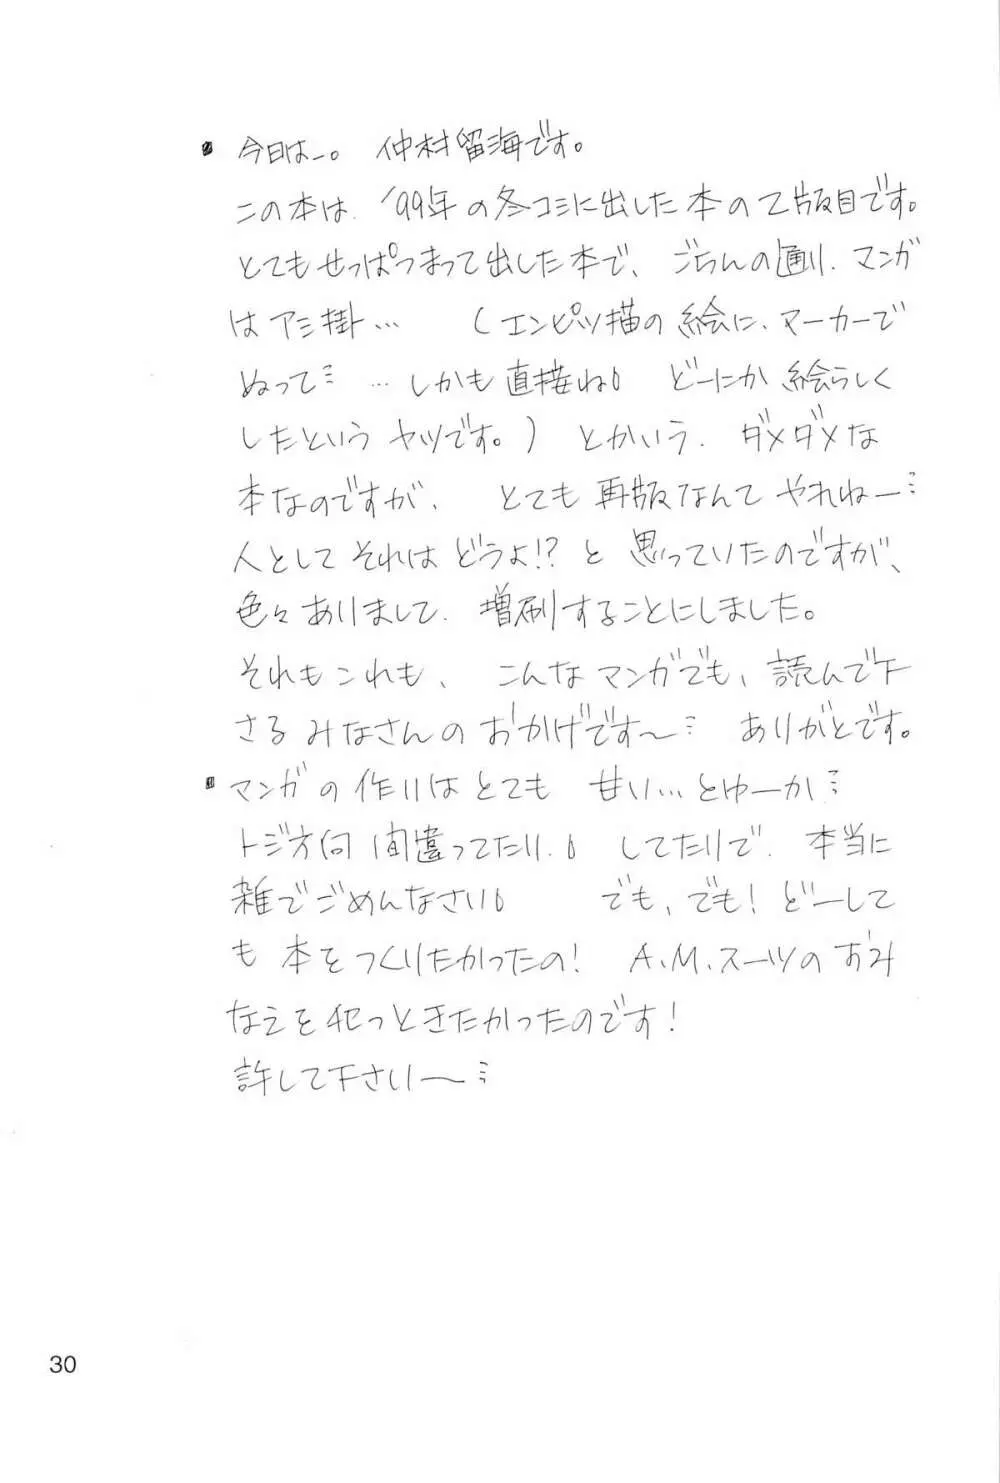 今日はー。 仲村留海です。
この本は、'99年の冬コミに出した本の2版目です。
とてもせっぱつまって出した本で、ごらんの通り、マンガ
はアミ掛… (エンピツ描の絵に、マーカーで
ぬって… …しかも直接ね。 どーにか絵らしく
したというヤツです。) とかいう、ダメダメな
本なのですが、 とても再版なんてやれねー…
人としてそれはどうよ!? と思っていたのですが、
色々ありまして、増刷することにしました。
それもこれも、 こんなマンガでも、読んで下
さるみなさんのおかげです〜… ありがとです。
マンガの作りはとても 甘い…とゆーか…
トジ方向間違ってたり、 してたりで、本当に
雑でごめんなさい。 でも、でも! どーして
も本をつくりたかったの! A.M.スーツのおみ
なえを犯っときたかったのです!
許して下さい〜…
30